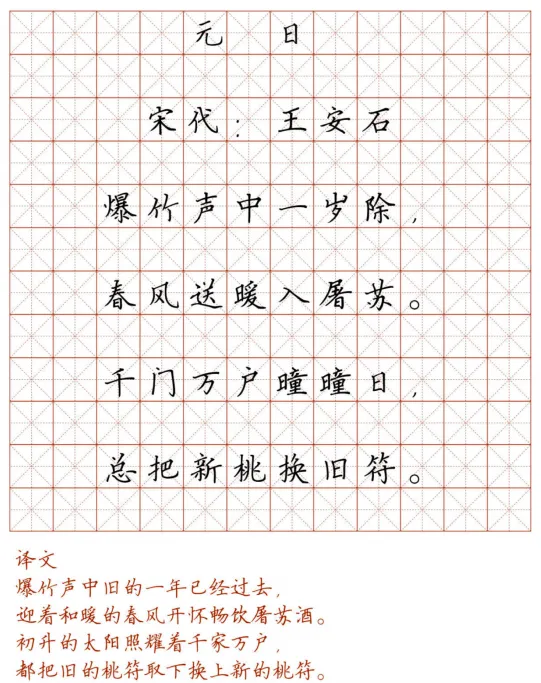 元日
宋代：王安石
爆竹声中一岁除，
春风送暖入屠苏。
千门万户曈曈日，
总把新桃换旧符。
译文
爆竹声中旧的一年已经过去，
迎着和暖的春风开怀畅饮屠苏酒。
初升的太阳照耀着千家万户，
都把旧的桃符取下换上新的桃符。